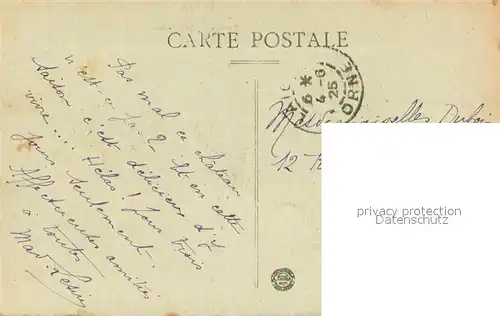 CARTE POSTALE
Pas mal ce château
n'est-ce pas ? Et en cette
saison c'est délicieux d'y
vivre... Hélas ! pour trois
jours seulement.
Affectueuses amitiés
à toutes
Mad.
16 *
4 - 6
25
ORNE
Mesdemoiselles Dubois
12 R
privacy protection